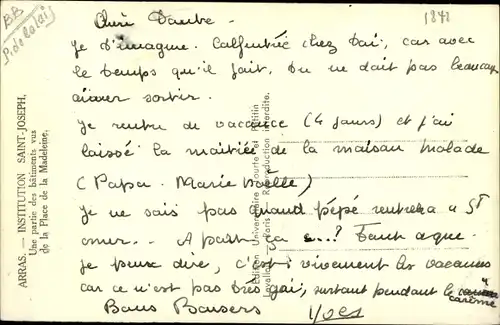 BB
P. de Calais
1878
ARRAS. — INSTITUTION SAINT-JOSEPH.
Une partie des bâtiments vus
de la Place de la Madeleine.
Edition Universitaire Tourte et Petitin
Levallois-Paris - Reproduction interdite.
Chère Tante -
Je t'imagine. Calfeutrée chez Toi, car avec
le temps qu'il fait, tu ne doit pas beaucoup
aimer sortir.
Je rentre de vacance (4 jours) et j'ai
laissé la moitiée de la maison malade
(Papa. Marie Noëlle)
Je ne sais pas quand pépé rentrera à St
omer.. - A part ça ...? Tout ce que
je peux dire, c'est: vivement les vacances
car ce n'est pas très gai, surtout pendant le
carème
Bons Baisers Yves